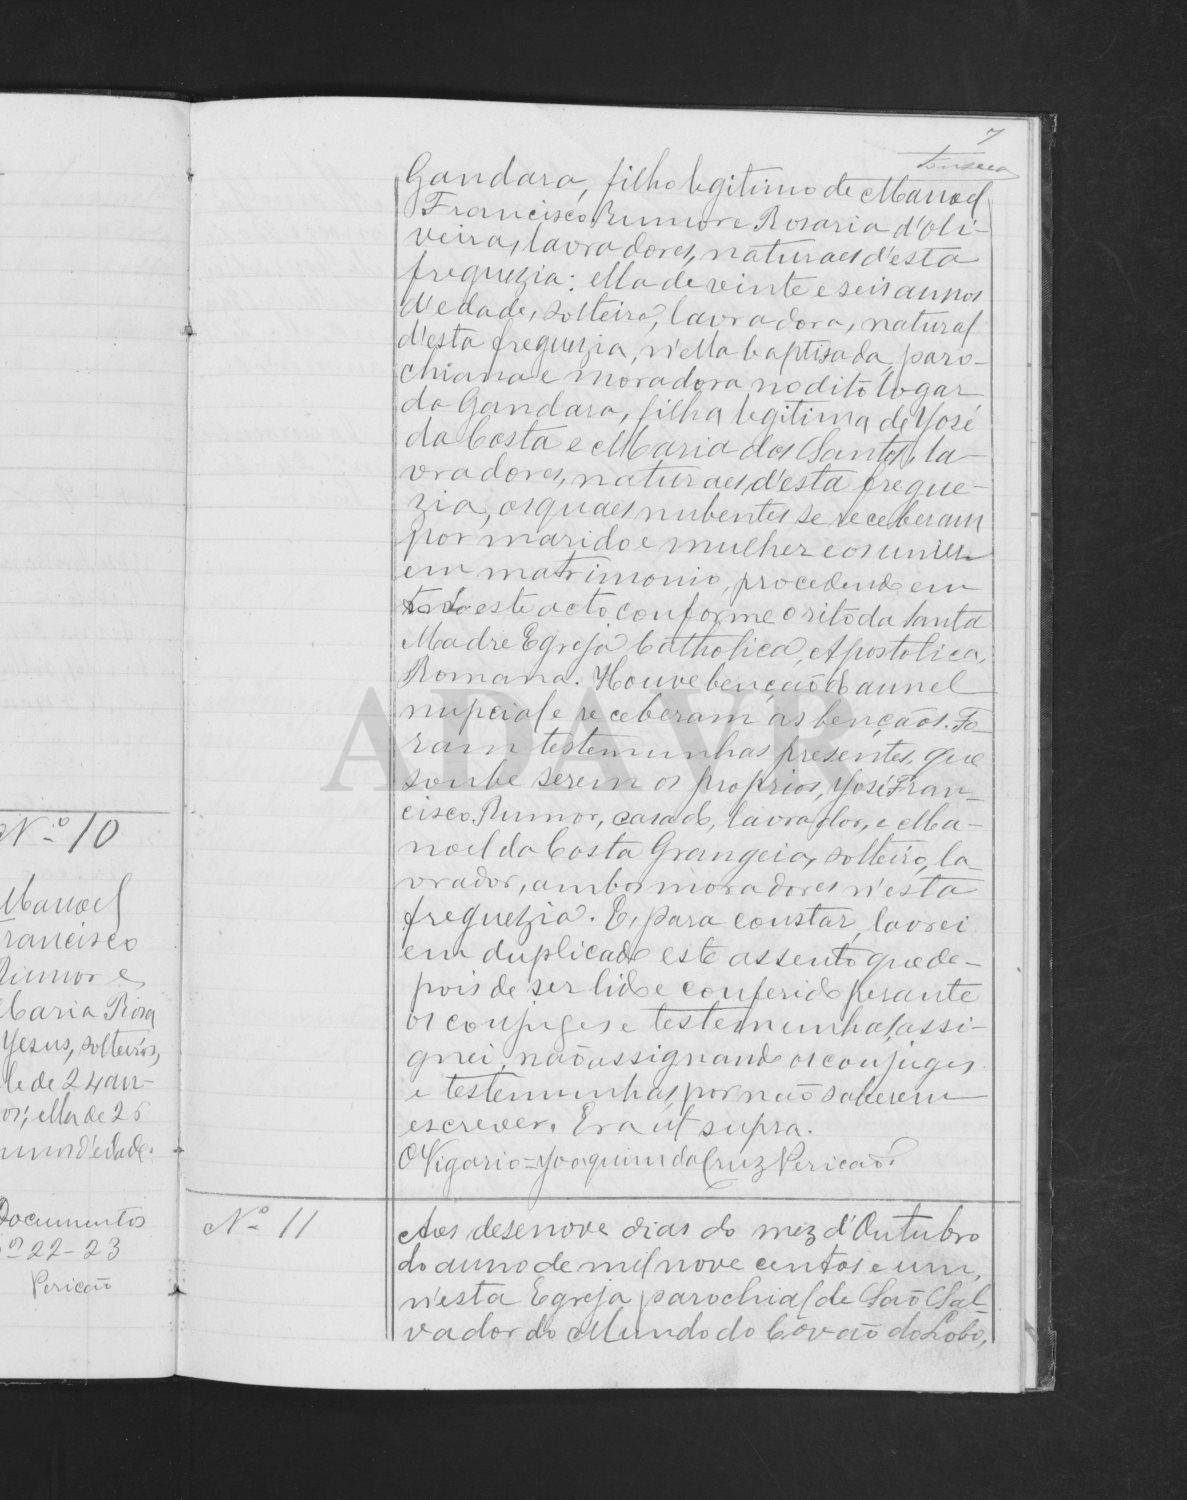 7
Fonseca
Gandara, filho legitimo de Manoel
Francisco Rumor e Rosaria d'Oli-
veira, lavradores, naturaes d'esta
freguezia: ella de vinte e seis annos
d'edade, solteira, lavradora, natural
d'esta freguezia, n'ella baptisada, paro-
chiana e moradora no dito logar
da Gandara, filha legitima de José
da Costa e Maria dos Santos, la-
vradores, naturaes d'esta fregue-
zia, os quaes nubentes se receberam
por marido e mulher e os uni
em matrimonio, procedendo em
todo este acto conforme o rito da Santa
Madre Egreja Catholica, Apostolica,
Romana. Houve benção d'annel
nupcial e receberam as bençãos. Fo-
ram testemunhas presentes, que
soube serem os proprios, José Fran-
cisco Rumor, casado, lavrador, e Ma-
noel da Costa Grangeia, solteiro, la-
vrador, ambos moradores n'esta
freguezia. E, para constar, lavrei
em duplicado este assento que de-
pois de ser lido e conferido perante
os conjuges e testemunhas, assi-
gnei, não assignando os conjuges
e testemunhas, por não saberem
escrever. Era ut supra.
O Vigario = Joaquim da Cruz Pericão.
Nº 11
Aos desenove dias do mez d'Outubro
do anno de mil nove centos e um,
n'esta Egreja parochial de São Sal-
vador do Mundo do Côvão do Lobo,
Nº 10
Manoel
Francisco
Rumor e
Maria Rosa
Jesus, solteiros,
le de 24 an-
os; ella de 26
nnos d'edade.
Documentos
nº 22-23
Pericão
ADAVR